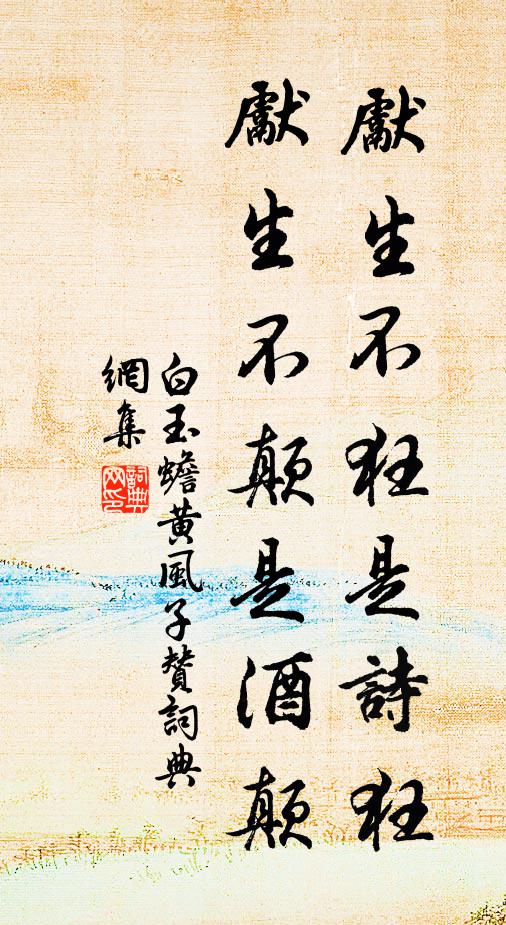 獻生不狂是詩狂
獻生不顛是酒顛
白玉蟾黃風子贊詞典
網集
詞典網印